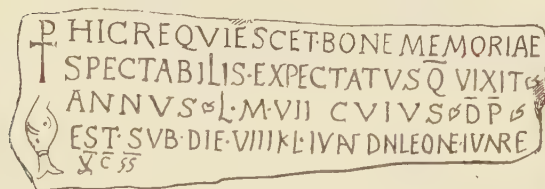 HIC REQVIESCET·BONE MEMORIAE
SPECTABILIS·EXPECTATVS Q̅ VIXIT
ANNVS L·M·VII CVIVS D̅P̅
EST·SVB·DIE·VIIII KL·IVN DNLEONE·IVNRE
X̅ C̅ S̅S̅